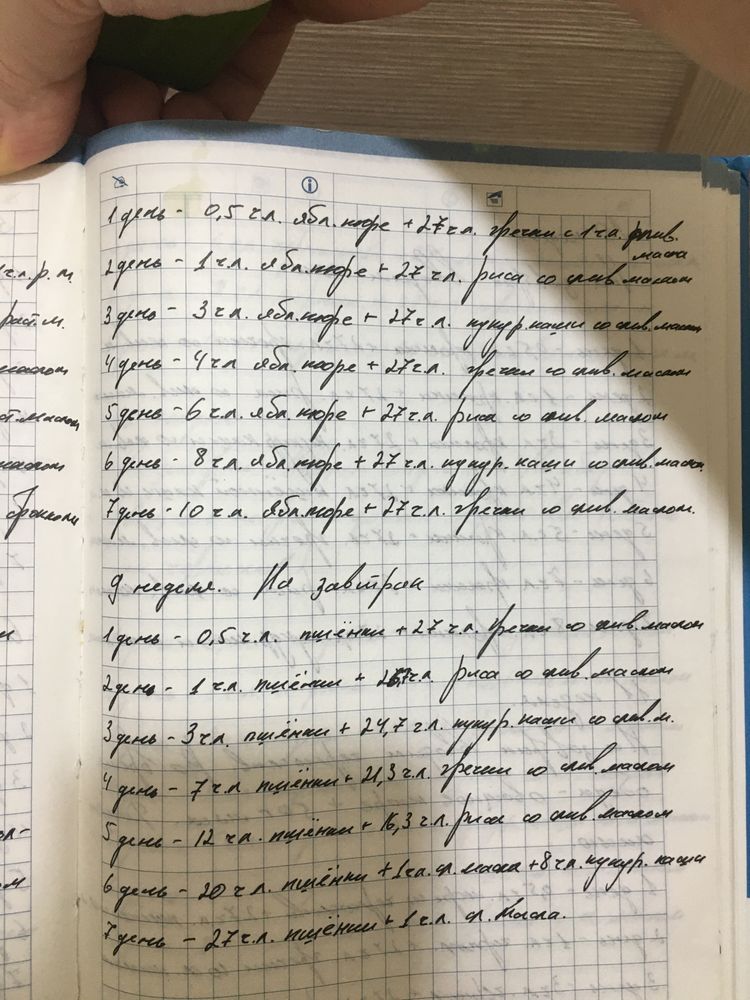 1 день - 0,5 ч.л. ябл.пюре + 27 ч.л. гречки с 1 ч.л. слив. масла
2 день - 1 ч.л. ябл.пюре + 27 ч.л. риса со слив. маслом
3 день - 3 ч.л. ябл.пюре + 27 ч.л. кукур. каши со слив. маслом
4 день - 4 ч.л. ябл. пюре + 27 ч.л. гречки со слив. маслом
5 день - 6 ч.л. ябл. пюре + 27 ч.л. риса со слив. маслом
6 день - 8 ч.л. ябл. пюре + 27 ч.л. кукур. каши со слив. маслом
7 день - 10 ч.л. ябл.пюре + 27 ч.л. гречки со слив. маслом.
9 неделя. На завтрак
1 день - 0,5 ч.л. пшёнки + 27 ч.л. гречки со слив. маслом
2 день - 1 ч.л. пшёнки + ч.л. риса со слив. маслом
3 день - 3 ч.л. пшёнки + 24,7 ч.л. кукур. каши со слив. м.
4 день - 7 ч.л. пшёнки + 21,3 ч.л. гречки со слив. маслом
5 день - 12 ч.л. пшёнки + 16,3 ч.л. риса со слив. маслом
6 день - 20 ч.л. пшёнки + 1 ч.л. сл. масла + 8 ч.л. кукур. каши
7 день - 27 ч.л. пшёнки + 1 ч.л. сл. масла.
ч.л. р. м.
раст. м.
маслом
маслом
маслом
брокколи